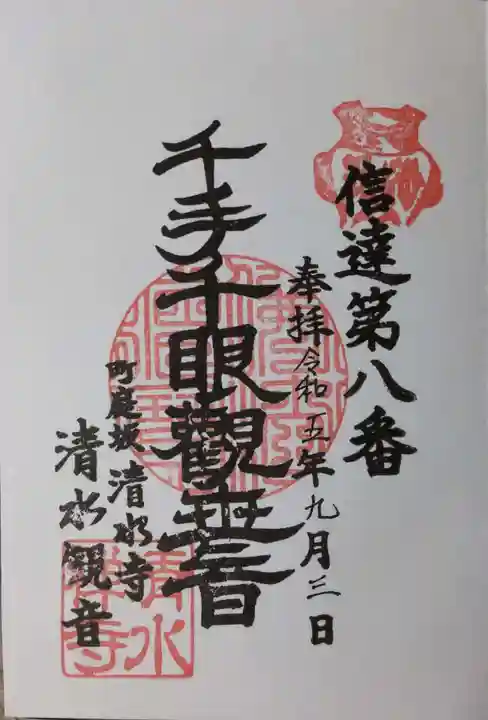 信達第八番
奉拝 令和五年九月三日
千手千眼觀世音
町庭坂 清水寺
清水觀音